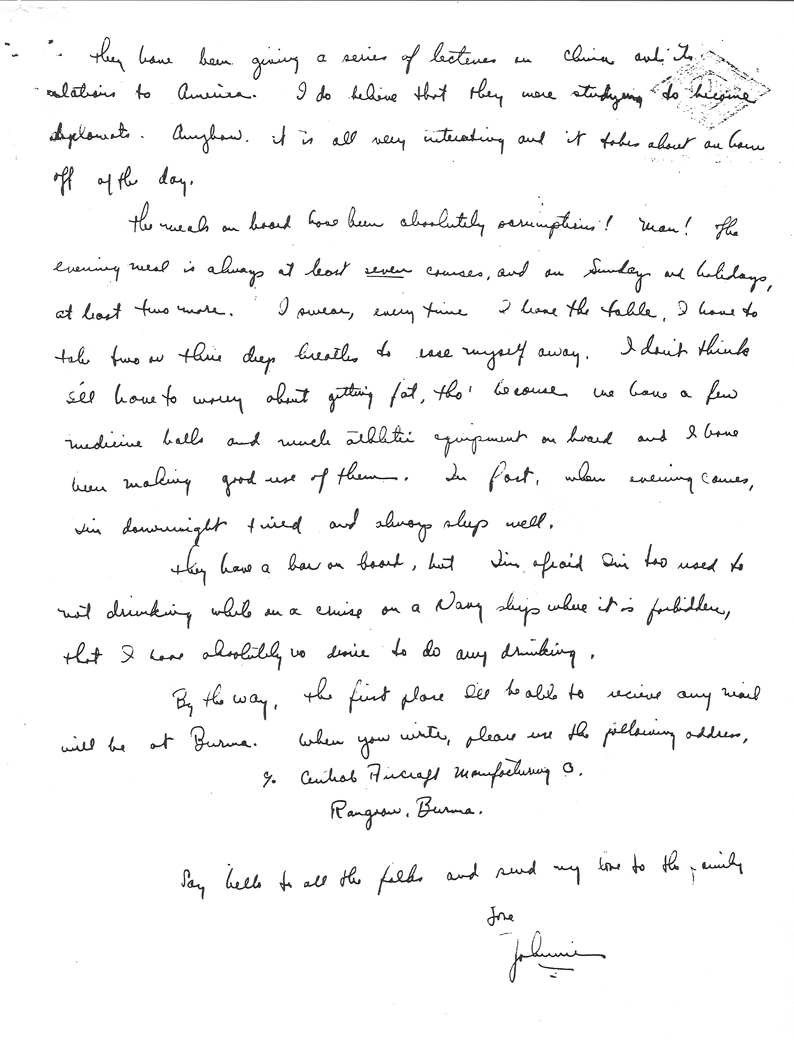 They have been giving a series of lectures on China and its
relations to America. I do believe that they were studying to become
diplomats. Anyhow. it is all very interesting and it takes about an hour
off of the day.
The meals on board have been absolutely scrumptious! Man! The
evening meal is always at least seven courses, and on Sundays and holidays,
at least two more. I swear, every time I leave the table, I have to
take two or three deep breaths to ease myself away. I don't think
I'll have to worry about getting fat, tho' because we have a few
medicine balls and much athletic equipment on board and I have
been making good use of them. In fact, when evening comes,
I'm downright tired and always sleep well.
They have a bar on board, but I'm afraid I'm too used to
not drinking while on a cruise on a Navy ships where it is forbidden,
that I have absolutely no desire to do any drinking.
By the way, the first place I'll be able to recieve any mail
will be at Burma. When you write, please use the following address,
% Central Aircraft Manufacturing Co.
Rangoon, Burma.
Say hello to all the folks and send my love to the family
Love
Johnnie